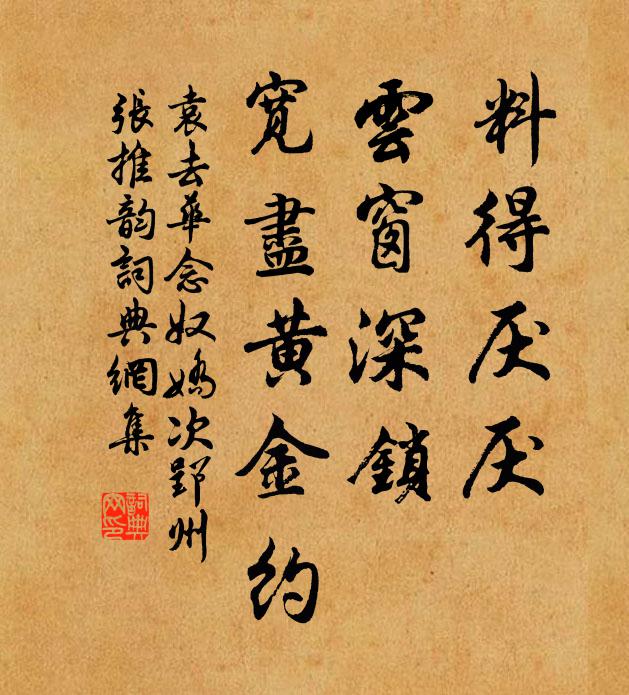 料得厌厌
雲窗深鎖
寬盡黄金約
袁去華念奴嬌次郢州
張推韵詞典網集
詞典
网印